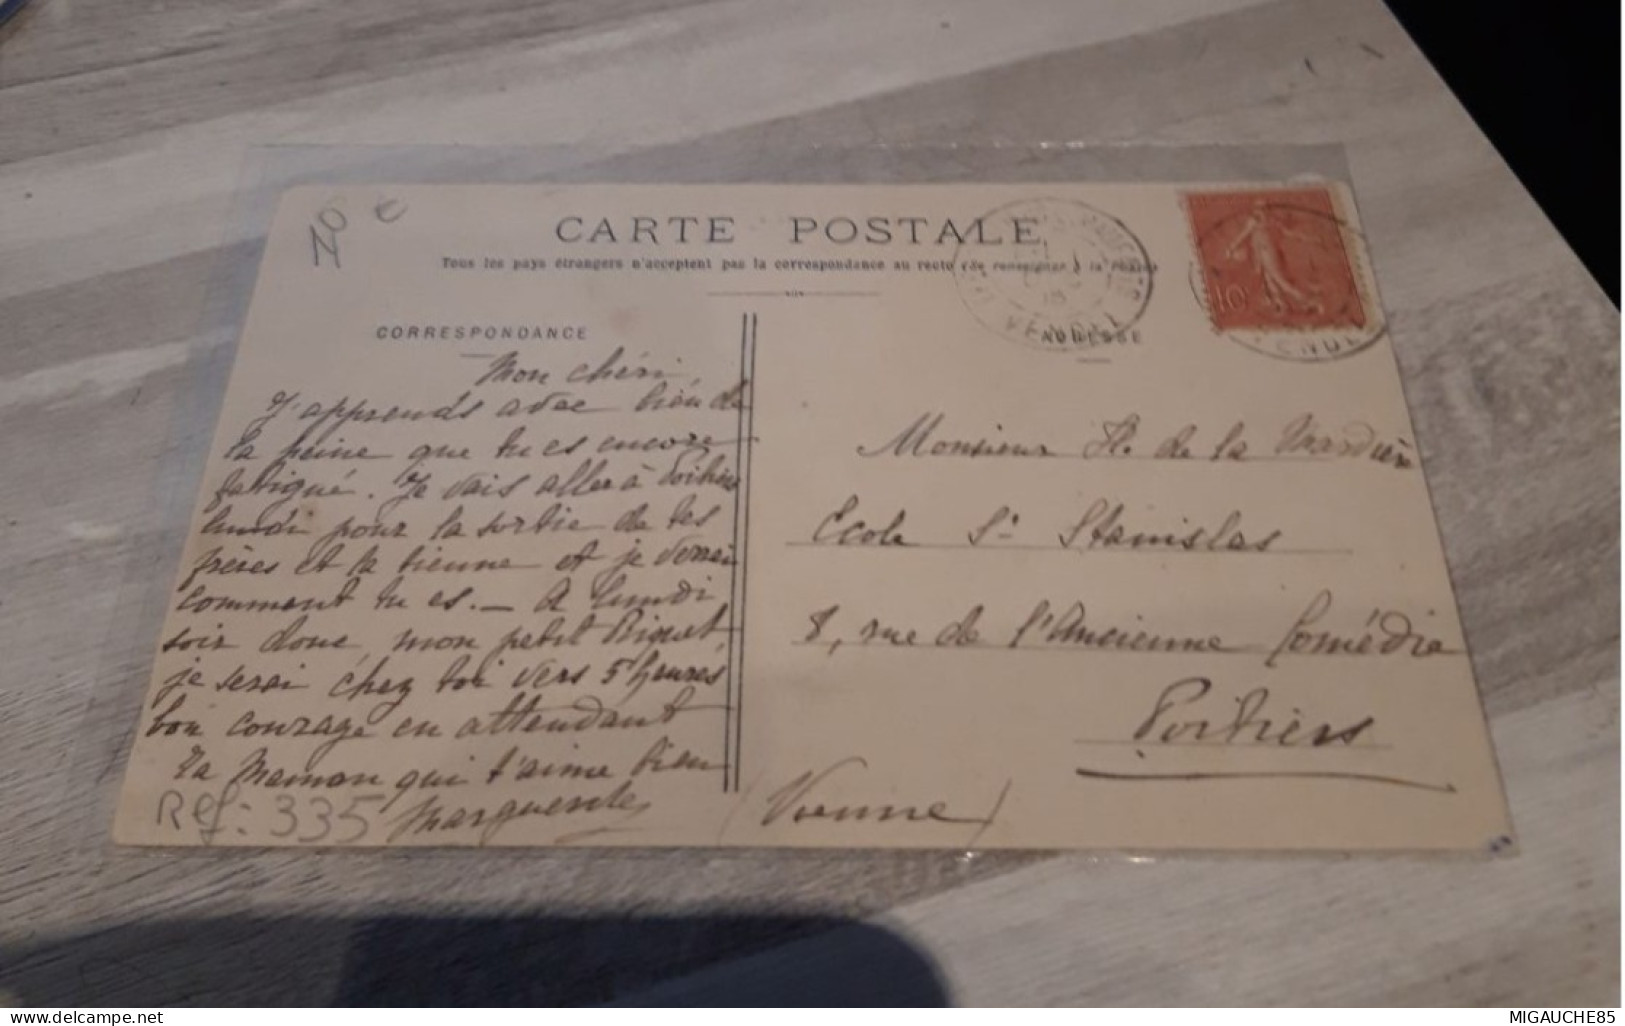 CARTE POSTALE
Tous les pays étrangers n'acceptent pas la correspondance au recto (se renseigner à la Poste)
CORRESPONDANCE
ADRESSE
VENDÉE
10
VENDÉE
Mon chéri,
J'apprends avec bien de
la peine que tu es encore
fatigué. Je vais aller à Poitiers
lundi pour la sortie de tes
frères et la tienne et je verrai
comment tu es. — A lundi
soir donc, mon petit
je serai chez toi vers 5 heures
bon courage en attendant
Ta Maman qui t'aime bien
Marguerite
Réf: 335
Monsieur H. de la Mardière
Ecole St Stanislas
8, rue de l'Ancienne Comédie
Poitiers
(Vienne)
www.delcampe.net
MIGAUCHE85